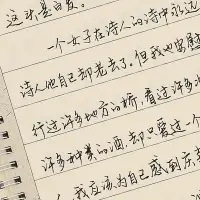 这头是白发。
一个女子在诗人的诗中永远
诗人他自己却老去了。但我也要
行过许多地方的桥，看过许多
许多种类的酒，却只爱过一个
我应该为自己感到庆